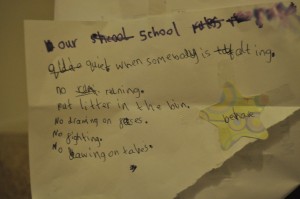 our school rules
quiet when somebody is talking.
no running.
put litter in the bin.
No drawing on faces.
No fighting.
No drawing on tabes.
behave